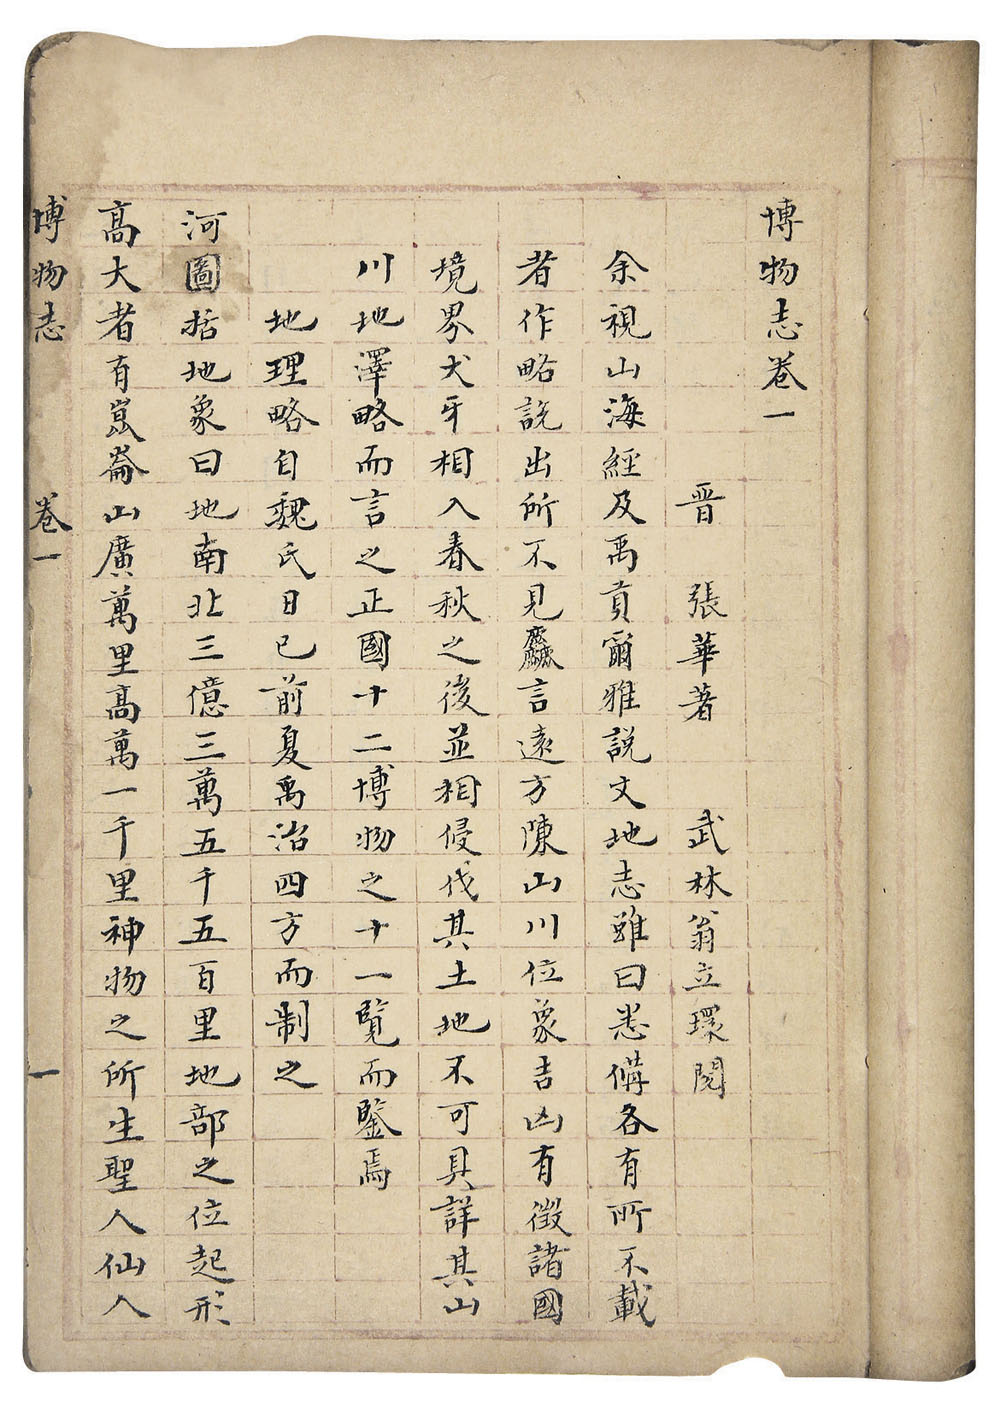 博物志卷一
晋 張華著 武林翁立環閱
余視山海經及禹貢爾雅說文地志雖曰悉備各有所不載
者作略說出所不見麤言遠方陳山川位象吉凶有徵諸國
境界犬牙相入春秋之後並相侵伐其土地不可具詳其山
川地澤略而言之正國十二博物之十一覽而鑒焉
地理略自魏氏日已前夏禹治四方而制之
河圖括地象曰地南北三億三萬五千五百里地部之位起形
高大者有崑崙山廣萬里高萬一千里神物之所生聖人仙人
博物志 卷一 一